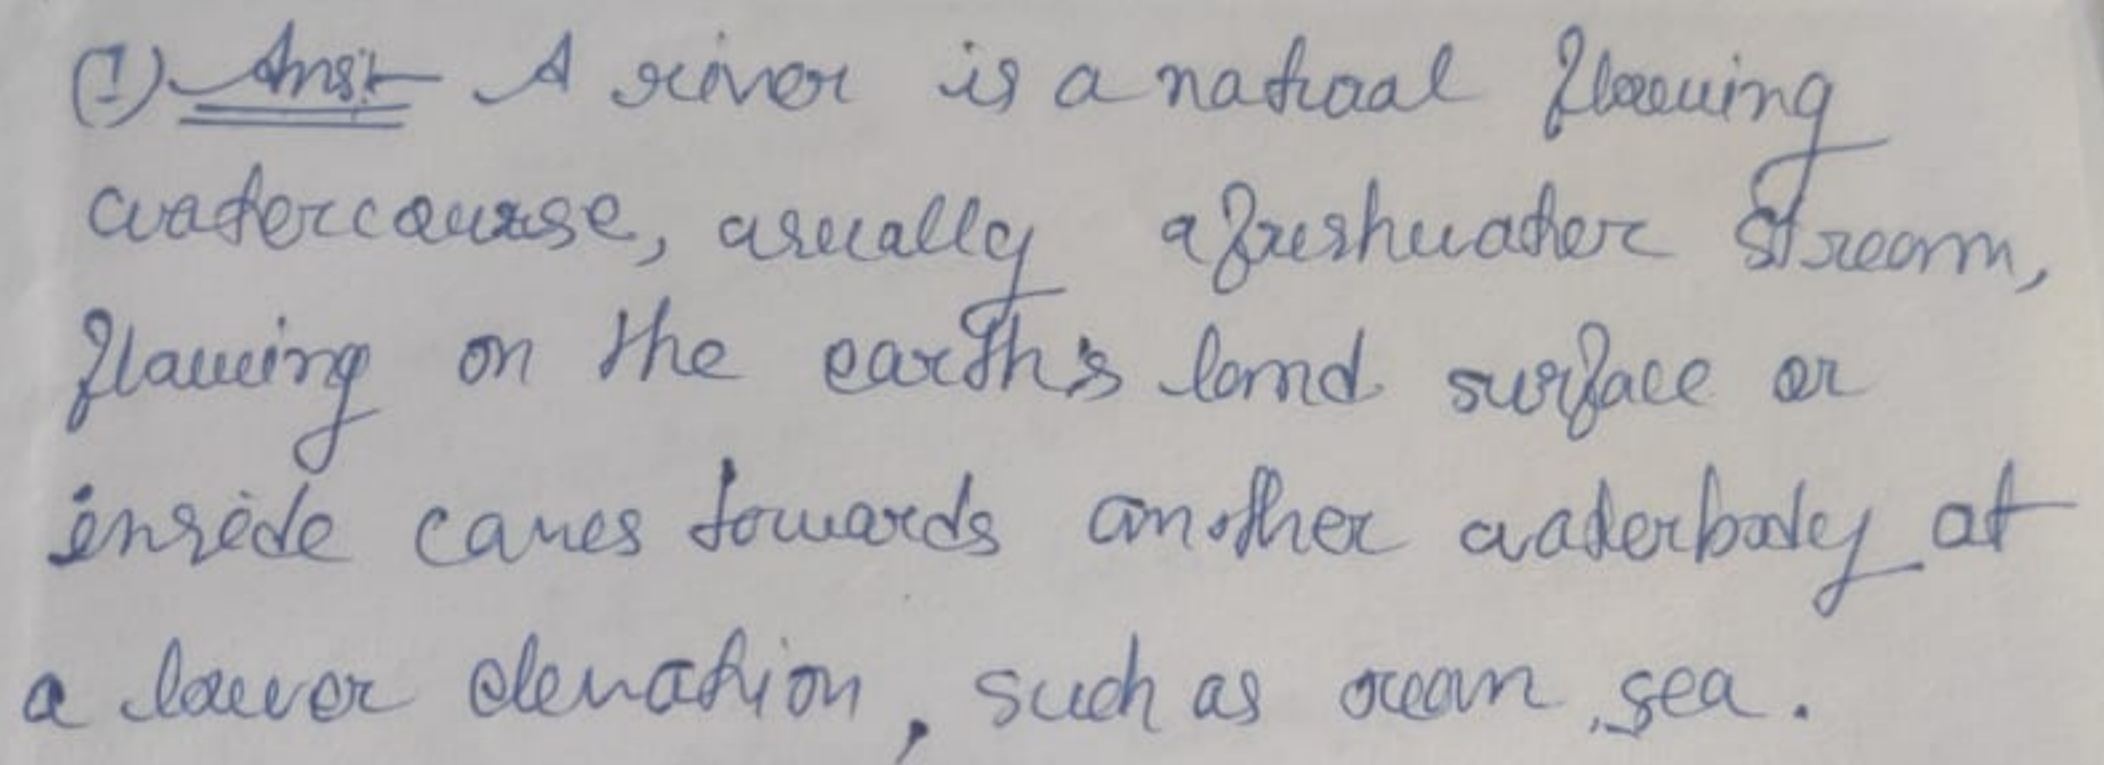 (1) Ans:- A river is a natural flowing
watercourse, usually a freshwater stream,
flowing on the earth's land surface or
inside caves towards another waterbody at
a lower elevation, such as ocean, sea.